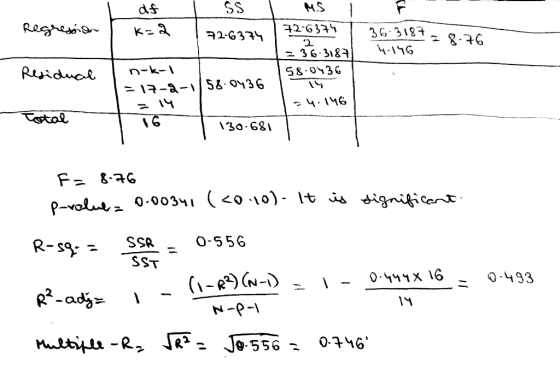 df SS MS F
Regression k=2 72.6374 72.6374/2 = 36.3187 36.3187/4.146 = 8.76
Residual n-k-1 = 17-2-1 = 14 58.0436 58.0436/14 = 4.146
Total 16 130.681
F = 8.76
p-value = 0.00341 (<0.10). It is significant.
R-sq. = SSR/SST = 0.556
R²-adj = 1 - (1-R²)(N-1)/N-P-1 = 1 - 0.444×16/14 = 0.493
Multiple-R = √R² = √0.556 = 0.746